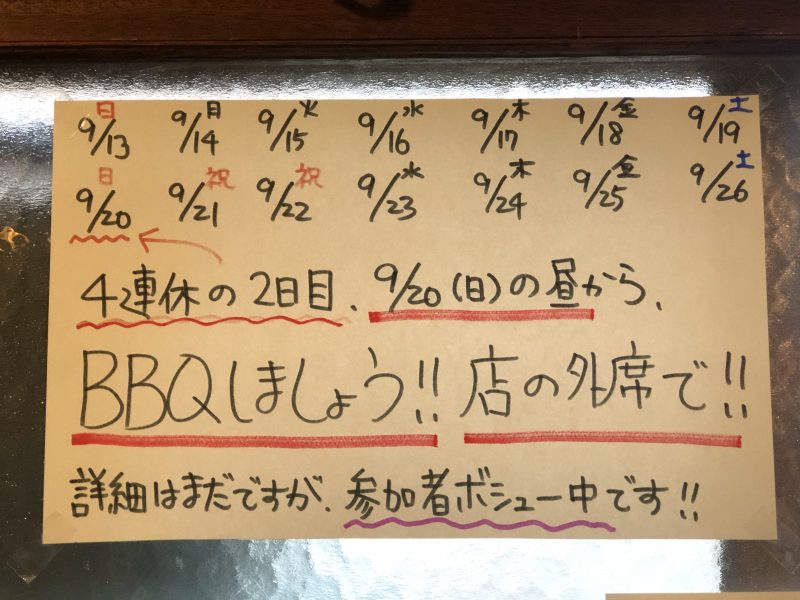 9/13日 9/14月 9/15火 9/16水 9/17木 9/18金 9/19土
9/20日 9/21祝 9/22祝 9/23水 9/24木 9/25金 9/26土
4連休の2日目、9/20(日)の昼から、
BBQしましょう!! 店の外席で!!
詳細はまだですが、参加者ボシュー中です!!